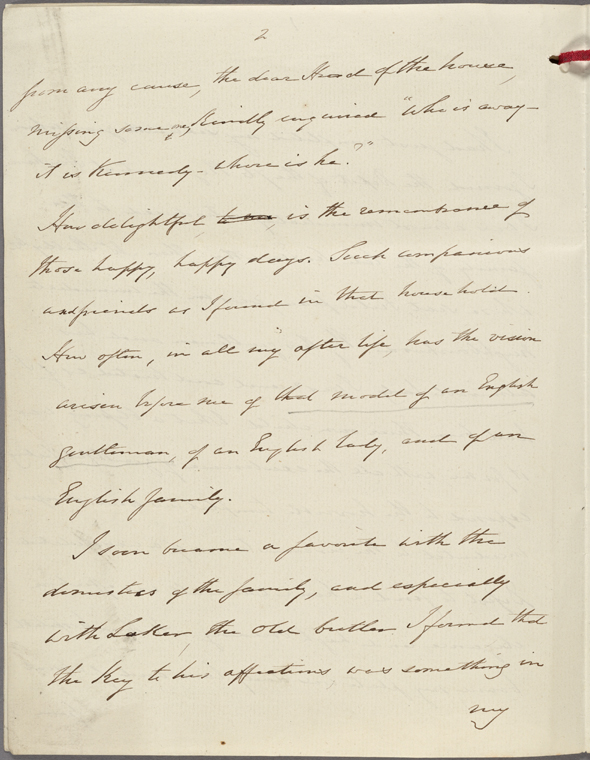 2
from any cause, the dear Head of the house,
missing some one, kindly inquired "Who is away -
it is Kennedy - where is he?"
How delightful, is the remembrance of
those happy, happy days. Such companions
and friends as I found in that household.
How often, in all my after life, has the vision
arisen before me of that model of an English
gentleman, of an English lady, and of an
English family.
I soon became a favorite with the
domestics of the family, and especially
with Laker, the old butler I found that
the Key to his affections was something in
my